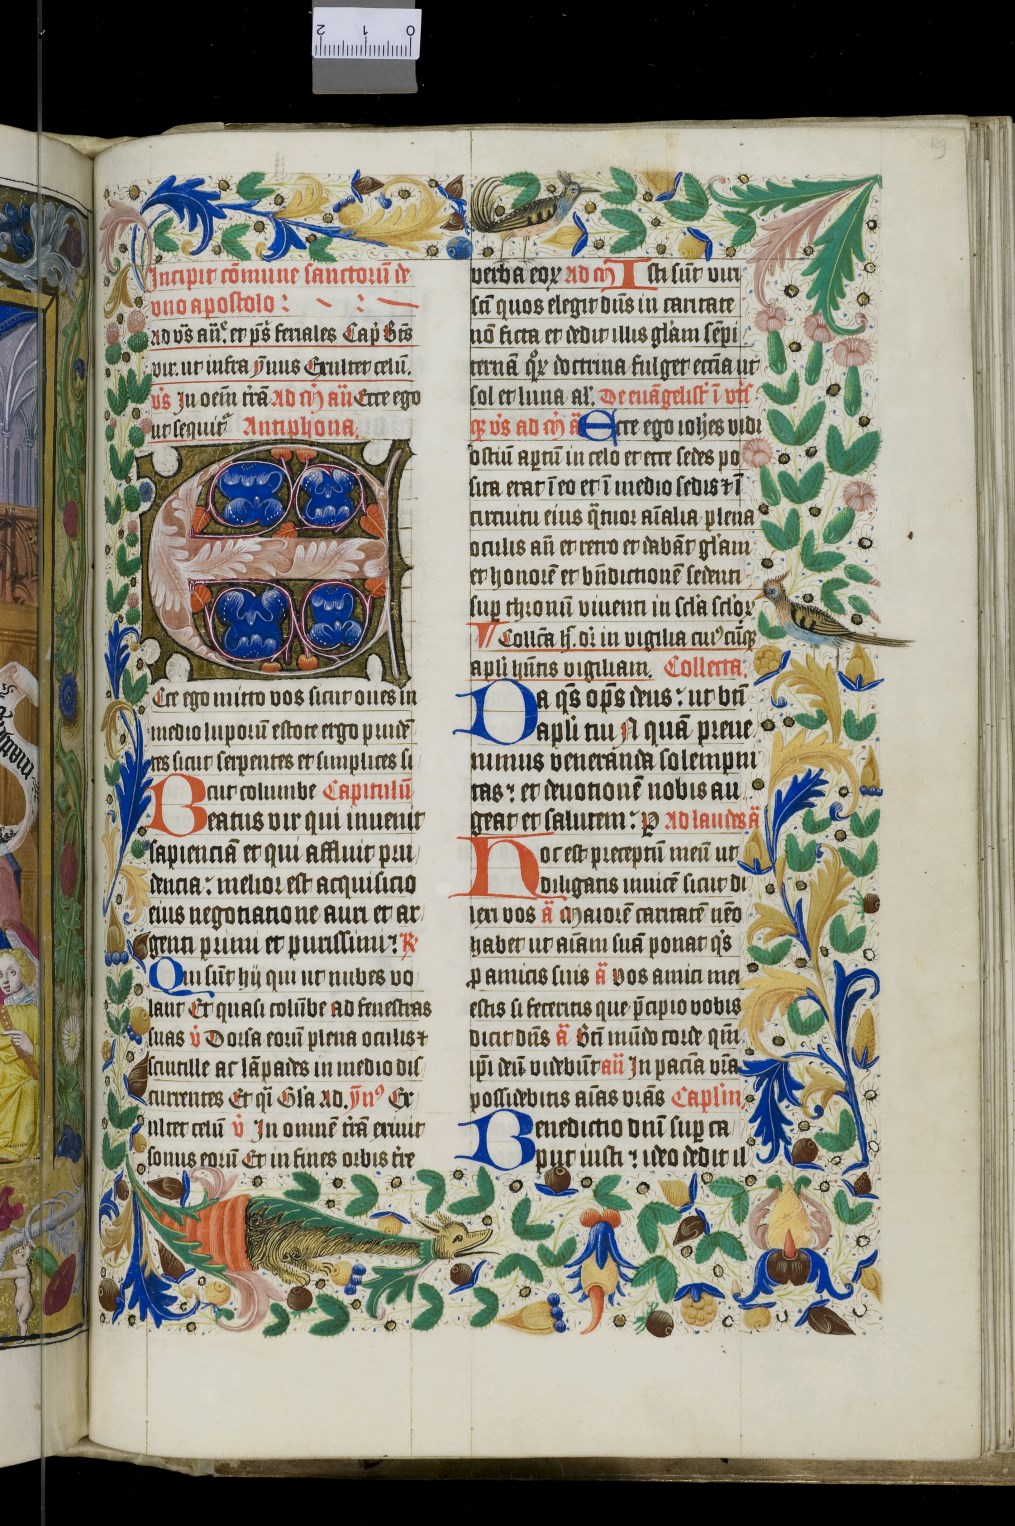 Incipit cōmune sanctorū de
uno apostolo :
Ad vs̄ an̄ et ps̄ feriales Cap Bt̄s
vir. ut infra ymnus Exultet celū.
vs̄ In oēm t̄rā Ad m̄ an̄ Ecce ego
ut sequit Antiphona.
Ecce ego mitto vos sicut oues in
medio luporū estote ergo prudē
tes sicut serpentes et simplices si
cut columbe Capitulū
Beatus vir qui inuenit
sapienciā et qui affluit pru
dencia: melior est acquisicio
eius negotiatione auri et ar
genti primi et purissimi: R
Qui sūt hij qui ut nubes vo
lant Et quasi colūbe ad fenestras
suas v Dorsa eorū plena oculis ⁊
scintille ac lāpades in medio dis
currentes Et q̄ Gl'a Ad. ymꝰ Ex
ultet celū v In omnē t̄rā exiuit
sonus eorū Et in fines orbis t̄re
verba eoꝝ Ad m̄ Isti sūt viri
sc̄i quos elegit dn̄s in caritate
nō ficta et dedit illis gl'am sēpi
ternā q̄ꝝ doctrina fulget ecc̄ia ut
sol et luna al'. De euāgelist' ī vt's
vs̄ ad m̄ ā Ecce ego ioh̄es vidi
ostiū aꝑtū in celo et ecce sedes po
sita erat ī eo et ī medio sedis ⁊ ī
circuitu eius q̄tuor aīalia plena
oculis an̄ et retro et dabāt gl'am
et honorē et bn̄dictionē sedenti
suꝑ thronū viuenti in scl'a scl'oꝝ
Collc̄a h̄. or̄ in vigilia cuiꝰcūqꝫ
apl'i hn̄tis vigiliam. Collecta.
Da qs̄ op̄s deus: ut btī
apl'i tui N quā preue
nimus veneranda solempni
tas: et deuotionē nobis au
geat et salutem: P Ad laudes ā
Hoc est preceptū meū ut
diligatis inuicē sicut di
lexi vos ā Maiorē caritatē nēo
habet ut aīam suā ponat q̄s
ꝓ amicis suis ā Vos amici mei
estis si feceritis que p̄cipio vobis
dicit dn̄s ā Bt̄i mūdo corde qm̄
ip̄i deū videbūt an̄ In pac̄ia vr̄a
possidebitis aīas vr̄as Caplm̄
Benedictio dn̄i suꝑ ca
put iusti ⁊ ideo dedit il